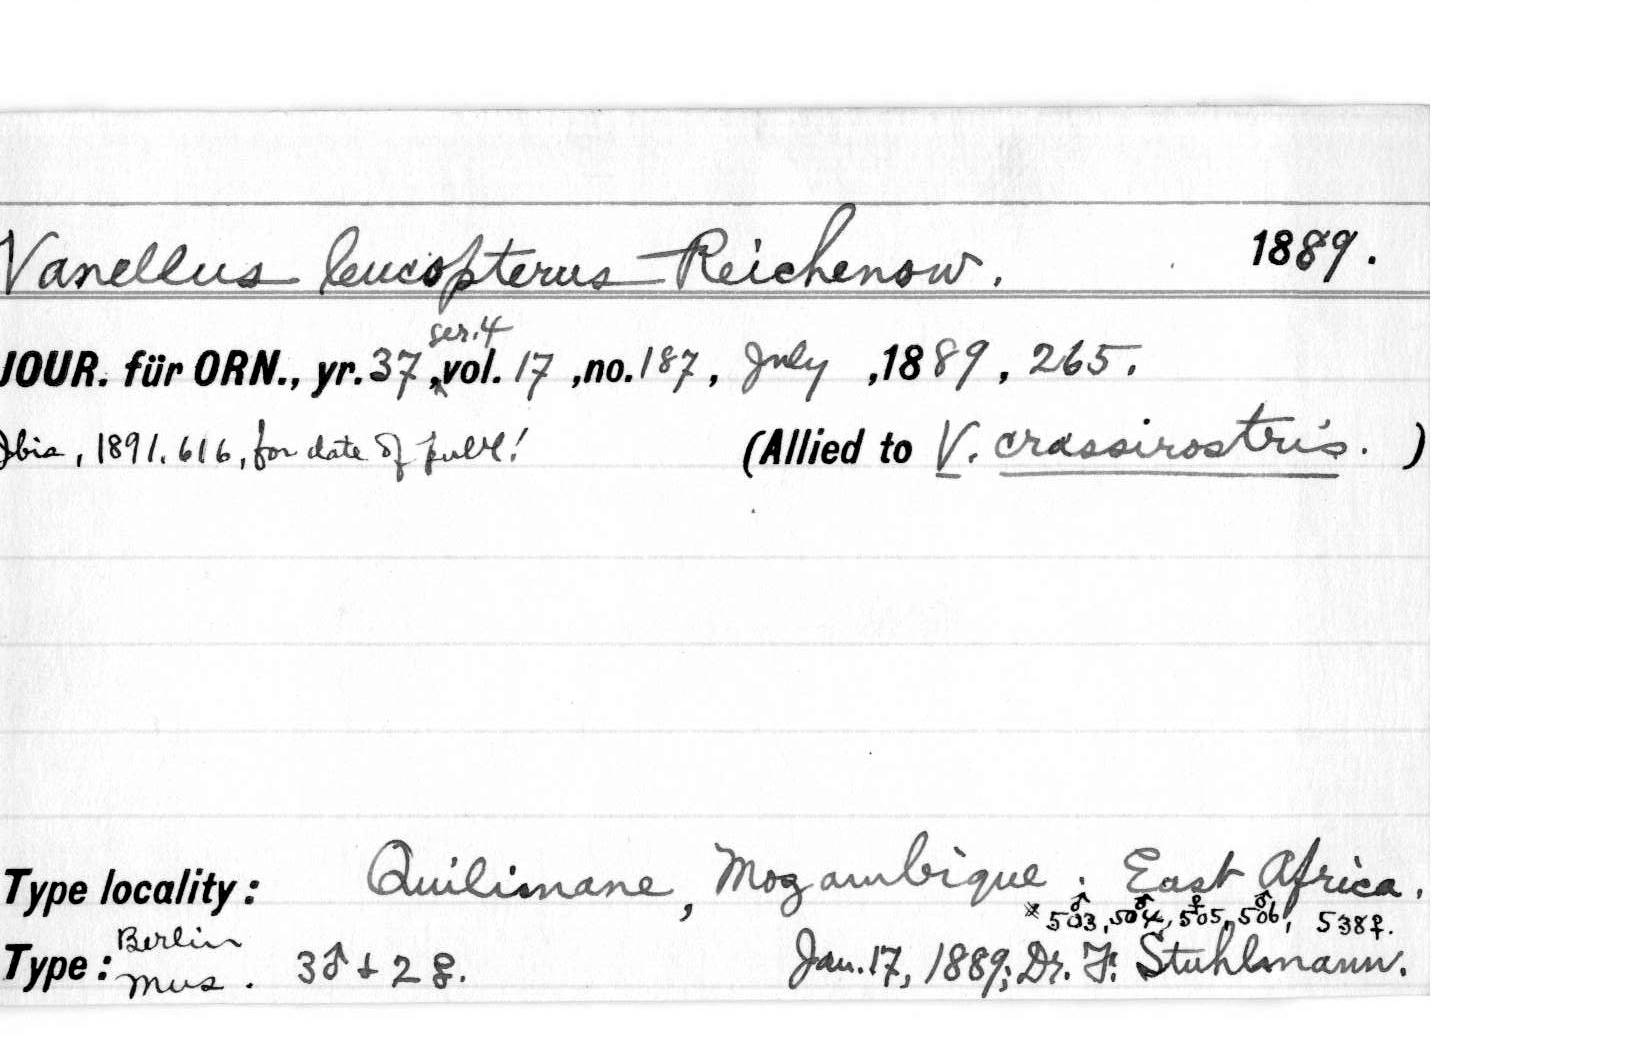 Vanellus leucopterus Reichenow. 1889.
ser. 4
JOUR. für ORN., yr. 37, vol. 17, no. 187, July, 1889, 265.
Ibis, 1891. 616, for date of publ! (Allied to V. crassirostris. )
Type locality: Quilimane, Mozambique. East Africa.
* 503♂, 504♂, 505♀, 506♂, 538♀.
Type: Berlin Mus. 3♂ + 2♀. Jan. 17, 1889; Dr. F. Stuhlmann.